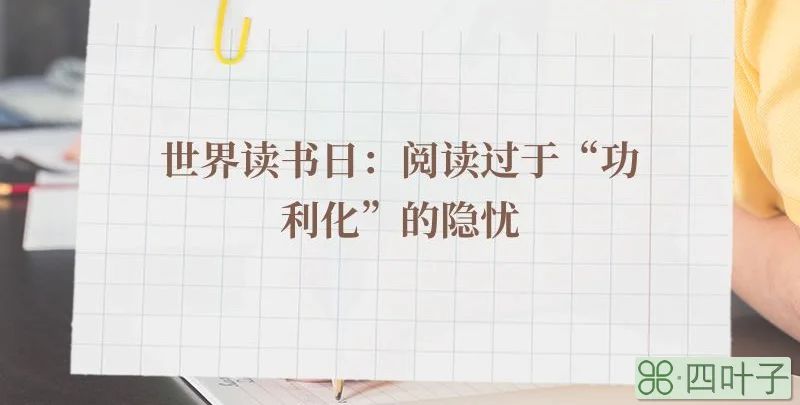 世界读书日：阅读过于“功
利化”的隐忧
四叶子